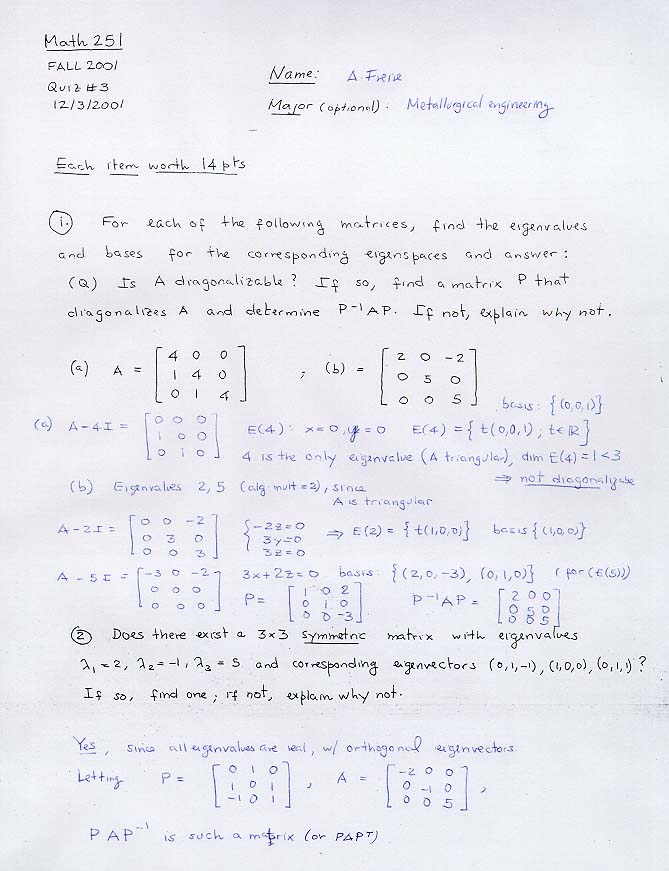 Math 251
FALL 2001
Quiz #3
12/3/2001
Name: A. Freire
Major (optional). Metallurgical engineering
Each item worth 14 pts
1. For each of the following matrices, find the eigenvalues
and bases for the corresponding eigenspaces and answer:
(Q) Is A diagonalizable? If so, find a matrix P that
diagonalizes A and determine P⁻¹AP. If not, explain why not.
(a) A = [4 0 0
1 4 0
0 1 4] ; (b) = [2 0 -2
0 5 0
0 0 5]
basis: {(0,0,1)}
(a) A-4I = [0 0 0
1 0 0
0 1 0] E(4): x=0, y=0 E(4) = {t(0,0,1); t∈ℝ}
4 is the only eigenvalue (A triangular), dim E(4) = 1 < 3
⇒ not diagonalizable
(b) Eigenvalues 2, 5 (alg. mult = 2), since
A is triangular
A-2I = [0 0 -2
0 3 0
0 0 3] { -2z=0
3y=0
3z=0 ⇒ E(2) = {t(1,0,0)} basis {(1,0,0)}
A-5I = [-3 0 -2
0 0 0
0 0 0] 3x+2z=0 basis: {(2,0,-3), (0,1,0)} (for (E(5))
P = [1 0 2
0 1 0
0 0 -3] P⁻¹AP = [2 0 0
0 5 0
0 0 5]
2 Does there exist a 3×3 symmetric matrix with eigenvalues
λ₁=2, λ₂=-1, λ₃=5 and corresponding eigenvectors (0,1,-1), (1,0,0), (0,1,1)?
If so, find one; if not, explain why not.
Yes, since all eigenvalues are real, w/ orthogonal eigenvectors.
Letting P = [0 1 0
1 0 1
-1 0 1], Λ = [-2 0 0
0 -1 0
0 0 5],
PΛP⁻¹ is such a matrix (or PΛPᵀ)